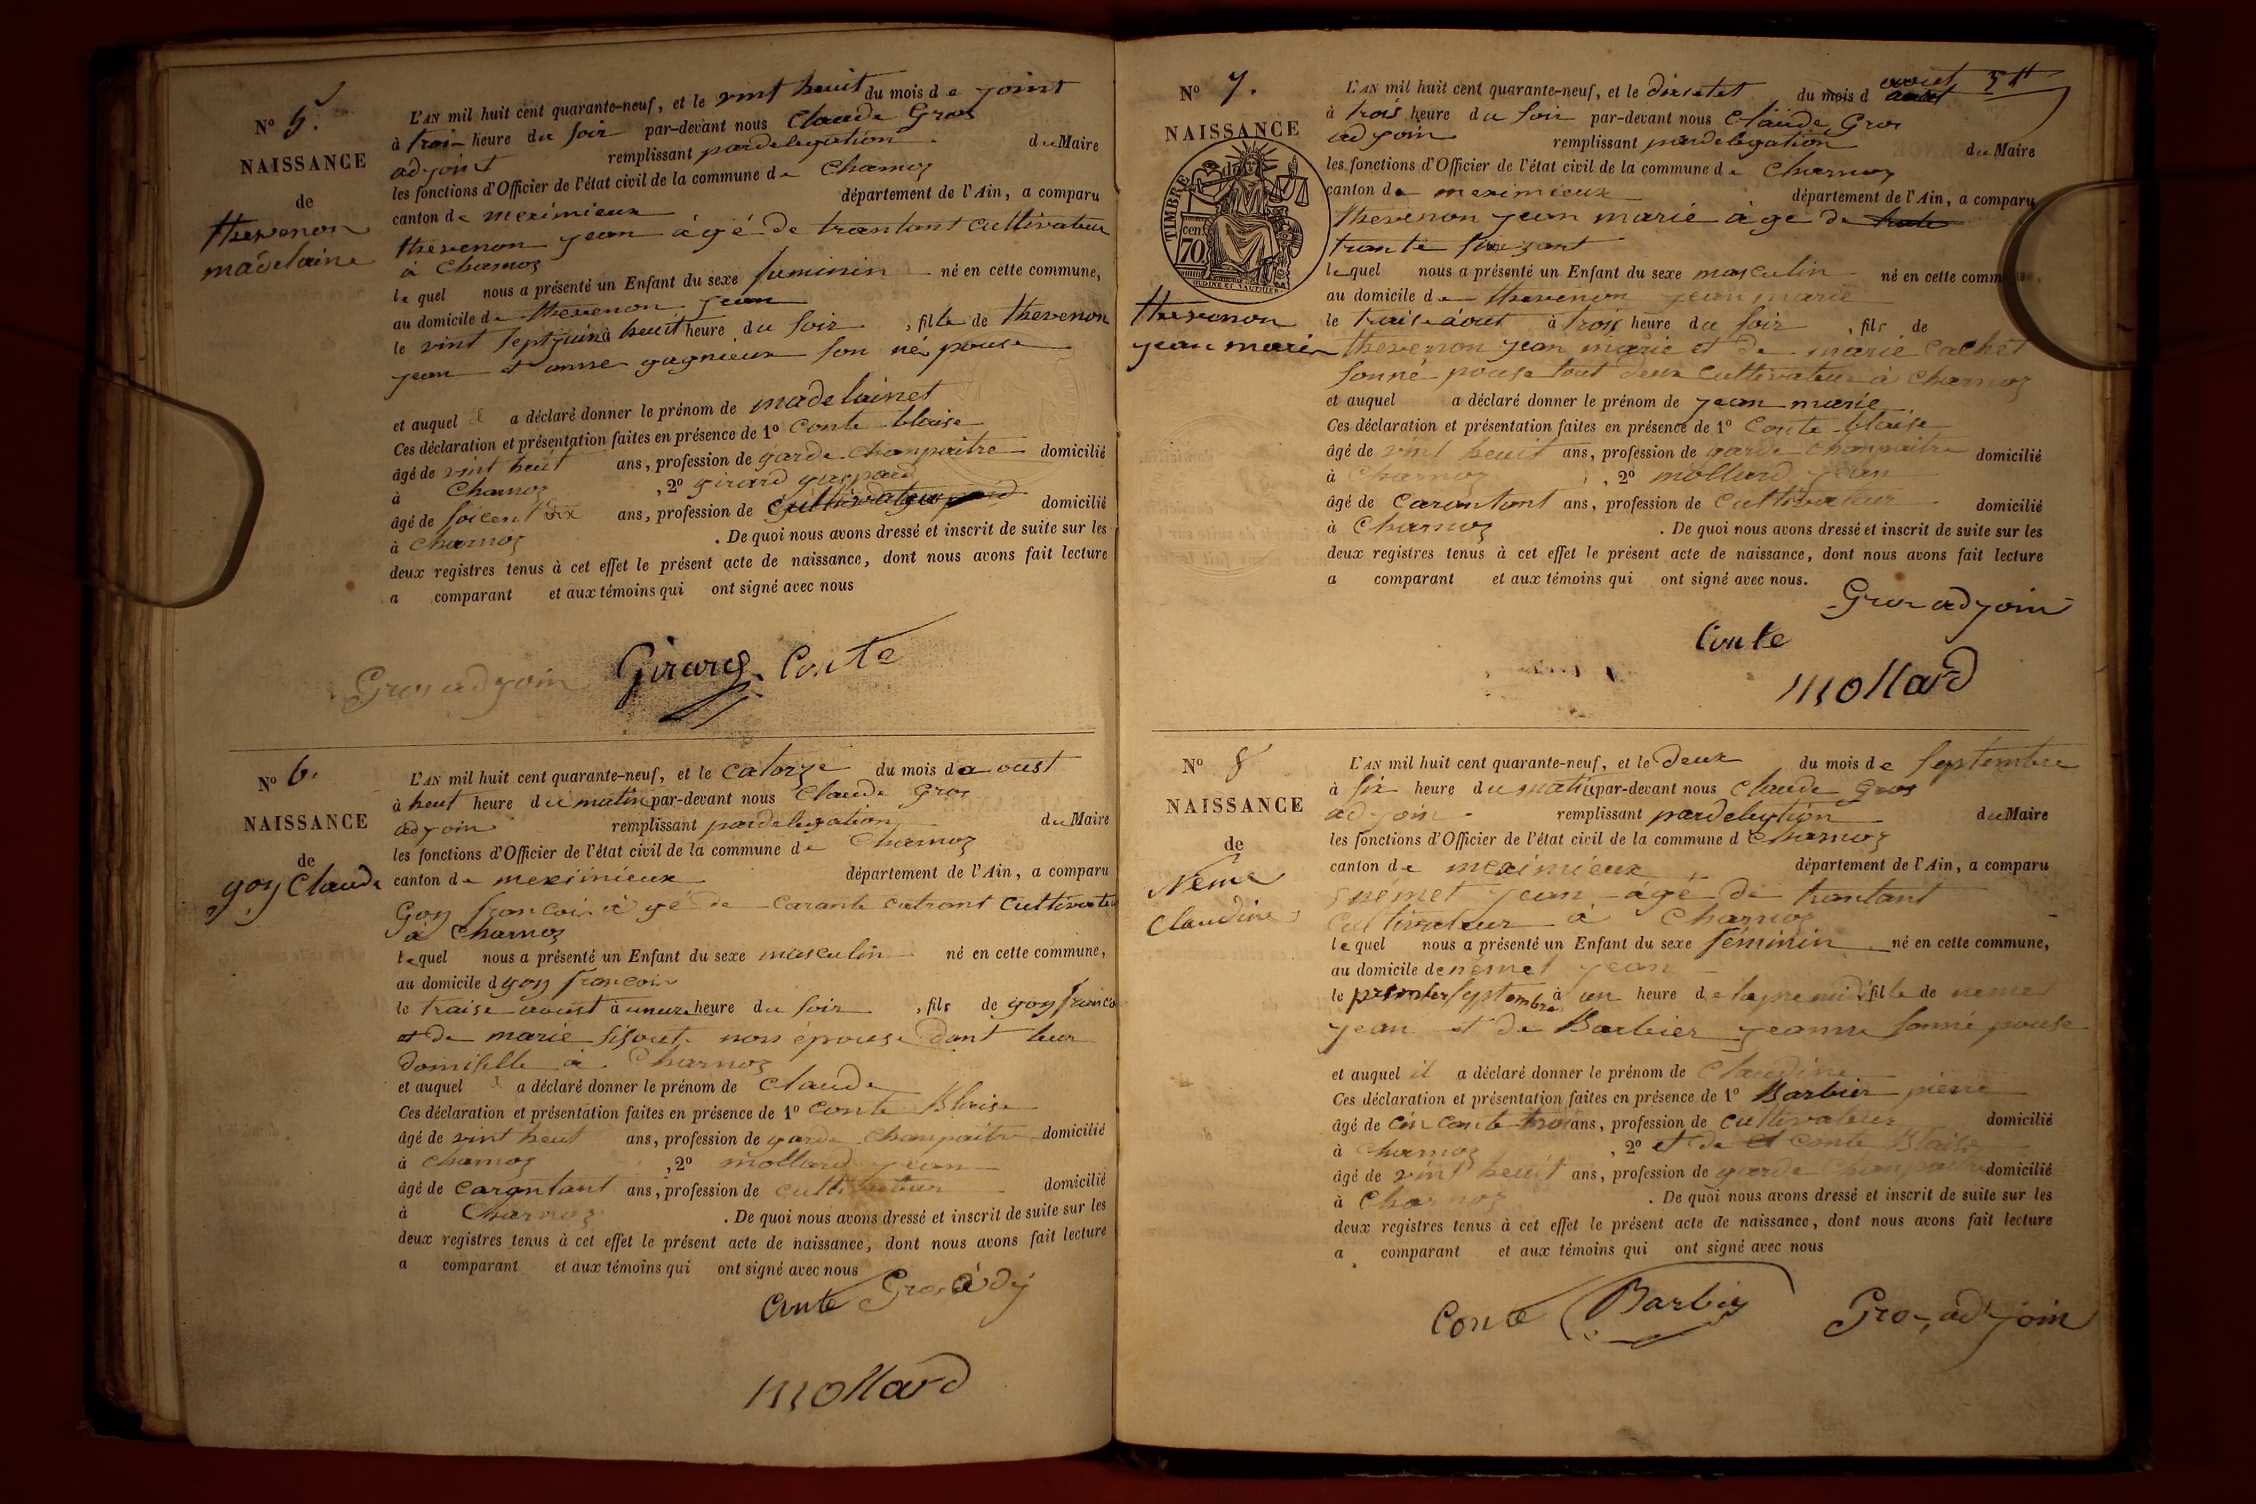 N° 5.
NAISSANCE
de
thevenon
madelaine
L'AN mil huit cent quarante-neuf, et le vint heuit du mois de joint
à trois heure du soir par-devant nous Claude Gros
adjoint remplissant pardelegation du Maire
les fonctions d'Officier de l'état civil de la commune de Charnoz
canton de meximieux département de l'Ain, a comparu
thevenon jean àgé de trantant cultivateur
à Charnoz
le quel nous a présenté un Enfant du sexe feminin né en cette commune,
au domicile de thevenon jean
le vint sept juin à heuit heure du soir, fille de thevenon
jean et anne gagnieux son népouse
et auquel il a déclaré donner le prénom de madelainet
Ces déclaration et présentation faites en présence de 1° Conte blaise
âgé de vint heuit ans, profession de garde champaitre domicilié
à Charnoz, 2° girard gaspard
âgé de soicent ans, profession de domicilié
à Charnoz. De quoi nous avons dressé et inscrit de suite sur les
deux registres tenus à cet effet le présent acte de naissance, dont nous avons fait lecture
a comparant et aux témoins qui ont signé avec nous
Gros adjoin Girard Conte
N° 6.
NAISSANCE
de
goy Claude
L'AN mil huit cent quarante-neuf, et le catorze du mois d aoust
à heut heure du matin par-devant nous Claude Gros
adjoin remplissant pardelegation du Maire
les fonctions d'Officier de l'état civil de la commune de Charnoz
canton de meximieux département de l'Ain, a comparu
Goy francois à gé de carante catrant cultivateur
à Charnoz
lequel nous a présenté un Enfant du sexe masculin né en cette commune,
au domicile d goy francois
le traise aoust à unze heure du soir, fils de goy franco
et de marie non épouse dant leur
domisille à Charnoz
et auquel il a déclaré donner le prénom de Claude
Ces déclaration et présentation faites en présence de 1° Conte Blaise
âgé de vint heut ans, profession de garde champaitre domicilié
à Charnoz, 2° mollard jean
âgé de carantant ans, profession de cultivateur domicilié
à Charnoz. De quoi nous avons dressé et inscrit de suite sur les
deux registres tenus à cet effet le présent acte de naissance, dont nous avons fait lecture
a comparant et aux témoins qui ont signé avec nous
Conte Gros adj
mollard
N° 7.
NAISSANCE
de
TIMBRE
70 cen
OUDINÉ ET VAUTHIER
thevenon
jean marie
L'AN mil huit cent quarante-neuf, et le disetet du mois d aout
à trois heure du soir par-devant nous Claude Gros
adjoin remplissant pardelegation du Maire
les fonctions d'Officier de l'état civil de la commune de Charnoz
canton de meximieux département de l'Ain, a comparu
thevenon jean marie àge de
trante
lequel nous a présenté un Enfant du sexe masculin né en cette commune,
au domicile de thevenon jean marie
le traise aout à trois heure du soir, fils de
thevenon jean marie et de marie cachet
sonné pouse tout deux cultivateur à Charnoz
et auquel a déclaré donner le prénom de jean marie
Ces déclaration et présentation faites en présence de 1° Conte blaise
âgé de vint heuit ans, profession de garde champaitre domicilié
à Charnoz, 2° mollard jean
âgé de carantant ans, profession de cultivateur domicilié
à Charnoz. De quoi nous avons dressé et inscrit de suite sur les
deux registres tenus à cet effet le présent acte de naissance, dont nous avons fait lecture
a comparant et aux témoins qui ont signé avec nous.
Gros adjoin
Conte
mollard
N° 8
NAISSANCE
de
Néme
Claudine
L'AN mil huit cent quarante-neuf, et le deux du mois de septembre
à six heure du matin par-devant nous Claude Gros
adjoin remplissant pardelegtion du Maire
les fonctions d'Officier de l'état civil de la commune d Charnoz
canton de meximieux département de l'Ain, a comparu
német jean àgé de trantant
cultivateur à Charnoz
lequel nous a présenté un Enfant du sexe féminin né en cette commune,
au domicile de német jean
le premier septembre à un heure de lapremidi fille de neme
jean et de Barbier jeanne sonné pouse
et auquel il a déclaré donner le prénom de Claudine
Ces déclaration et présentation faites en présence de 1° Barbier pierre
âgé de cin cante troi ans, profession de cultivateur domicilié
à Charnoz, 2° et de Conte Blaise
âgé de vint heuit ans, profession de garde champaitre domicilié
à Charnoz. De quoi nous avons dressé et inscrit de suite sur les
deux registres tenus à cet effet le présent acte de naissance, dont nous avons fait lecture
a comparant et aux témoins qui ont signé avec nous
Conte Barbier Gros, adjoin